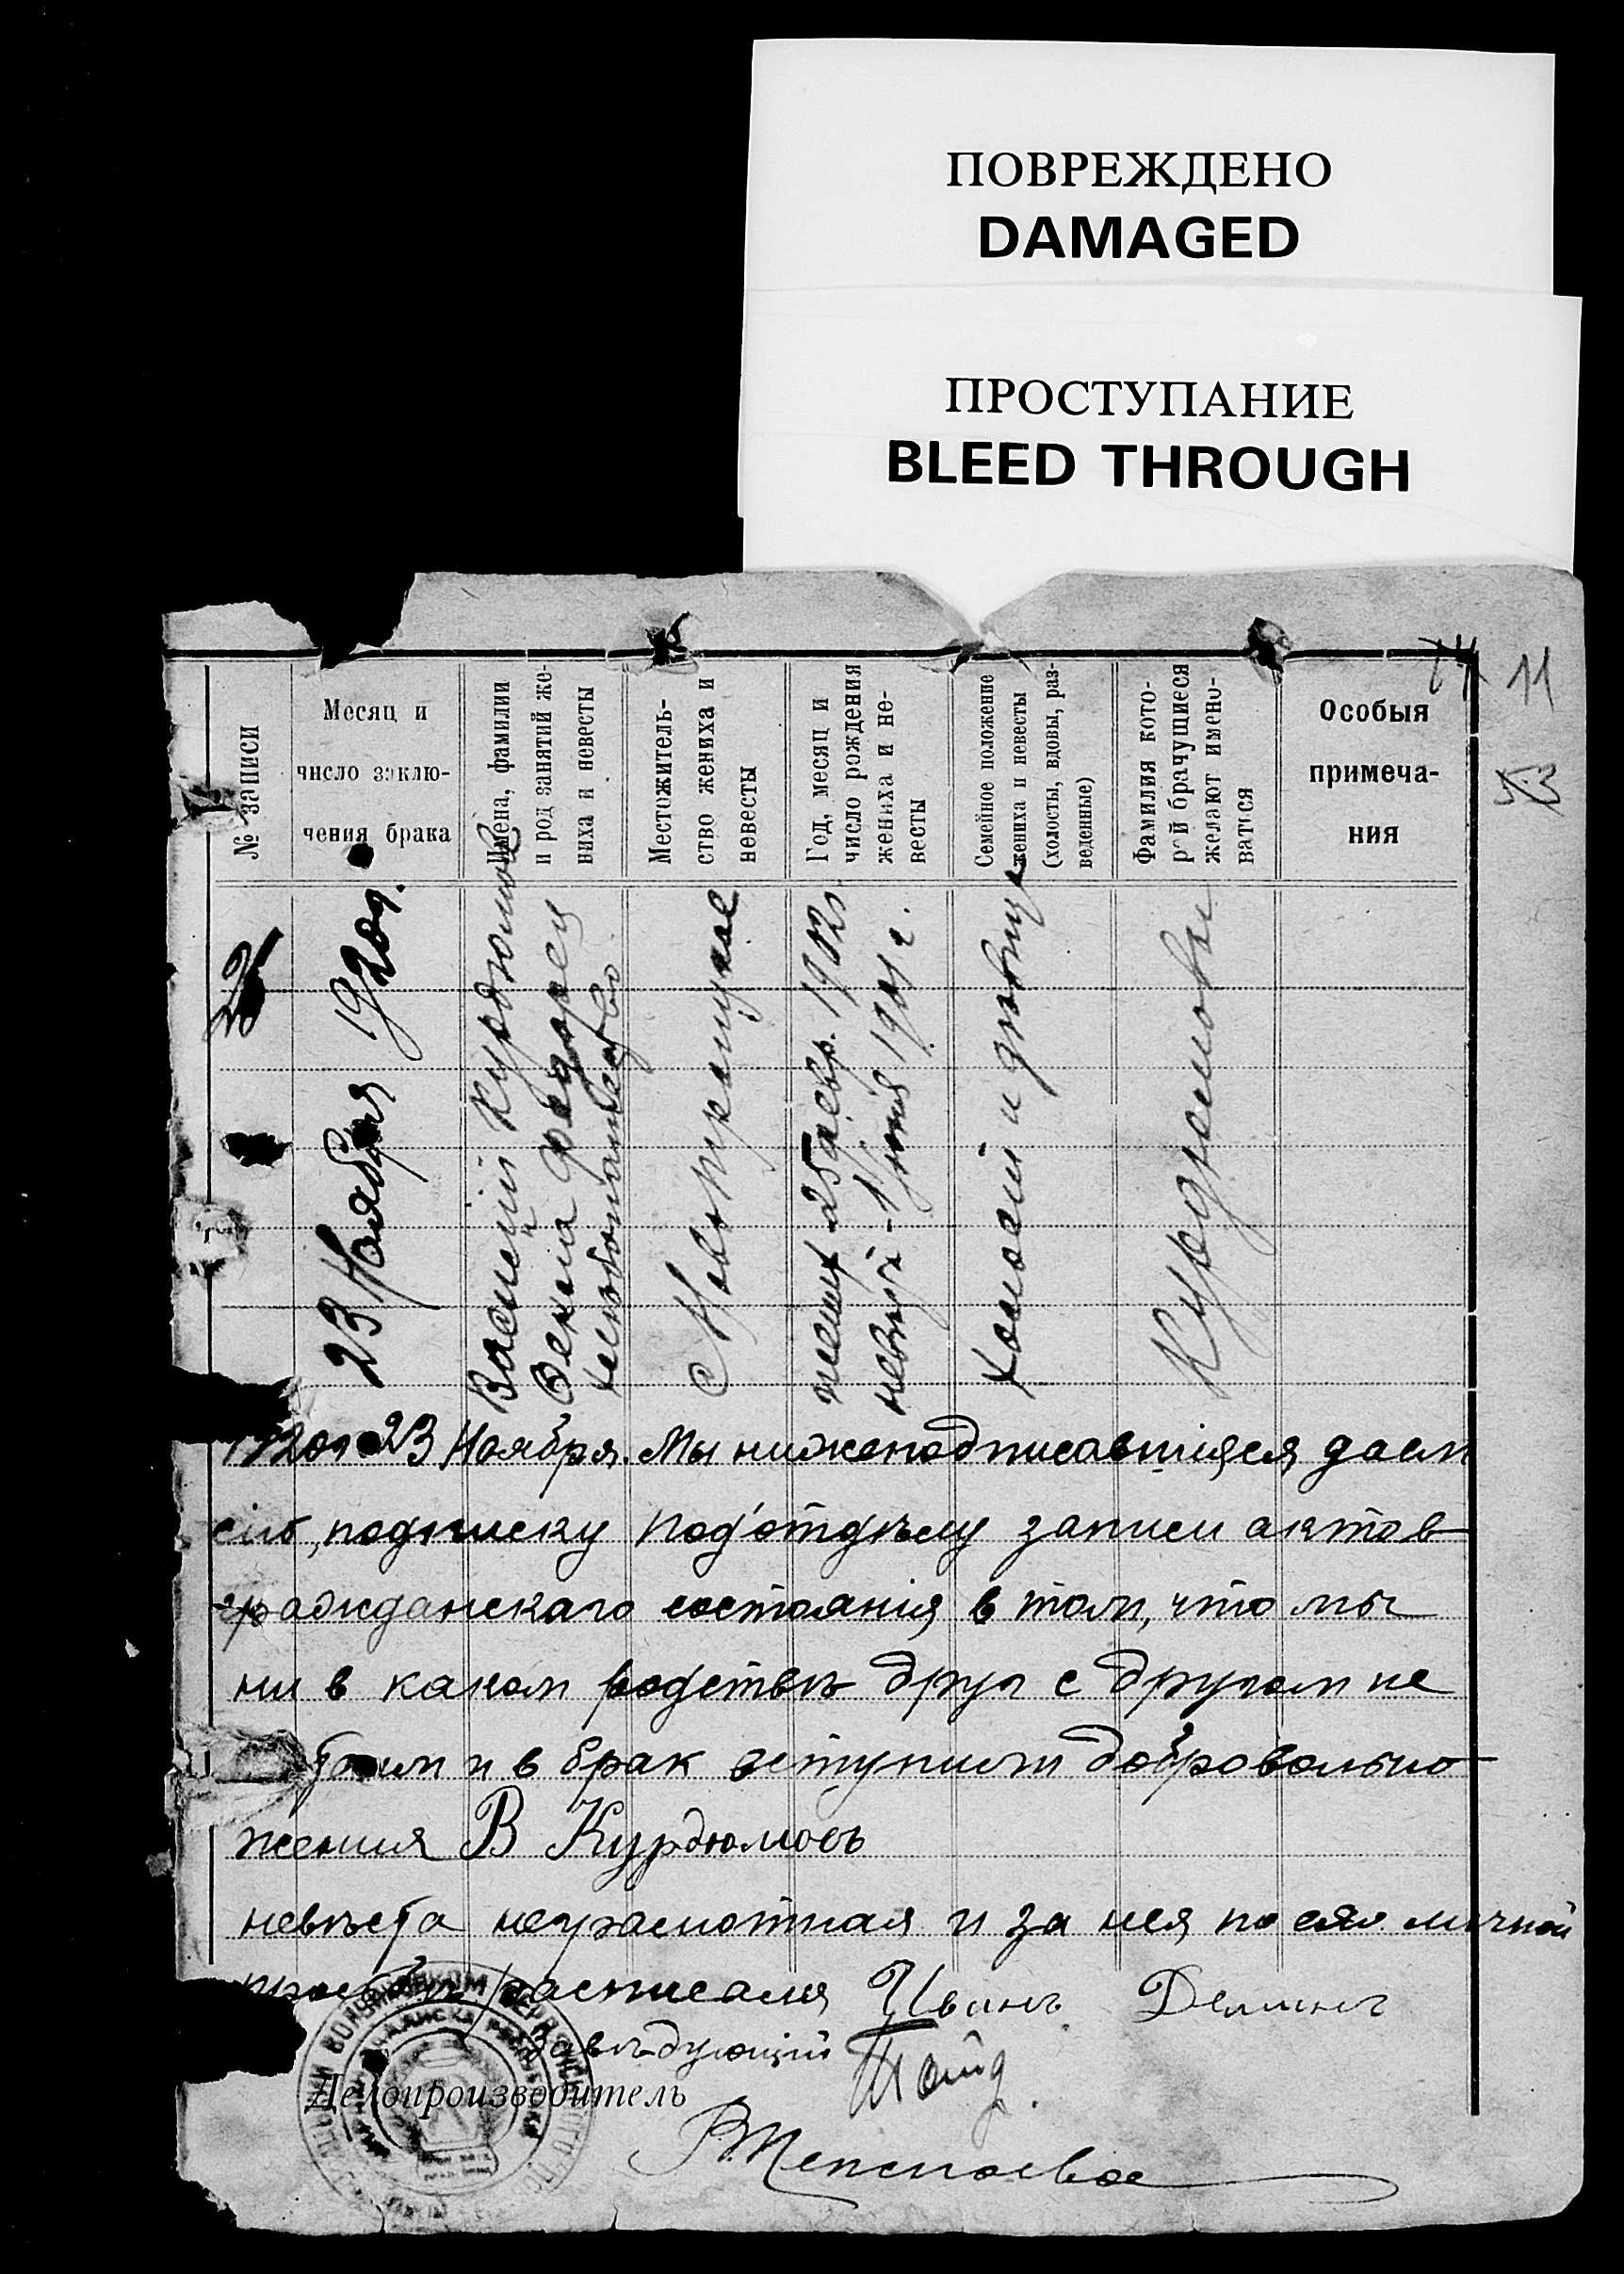 ПОВРЕЖДЕНО
DAMAGED
ПРОСТУПАНИЕ
BLEED THROUGH
11
53
№ записи
Месяц и
число заклю-
чения брака
Имена, фамилии
и род занятий же-
ниха и невесты
Местожитель-
ство жениха и
невесты
Год, месяц и
число рождения
жениха и не-
весты
Семейное положение
жениха и невесты
(холосты, вдовы, раз-
веденные)
Фамилия кото-
рой брачущиеся
желают имено-
ваться
Особыя
примеча-
ния
23 Ноября 1920г.
Василий Курдюмов
Фекла
хлебопашество
жених 25 февр. 1902г
невеста - 1 июня 1901 г.
холост и девица
Курдюмовы
1920г 23 Ноября. Мы нижеподписавшіяся даем
сію подписку Под'отделу записи актов
гражданскаго состоянія в том, что мы
ни в каком родстве друг с другом не
и в брак вступили добровольно
жених В Курдюмовъ
невѣста неграмотная и за нея по ея личной
просьбе расписался Иванъ Деминъ
Завѣдующій
Делопроизводитель